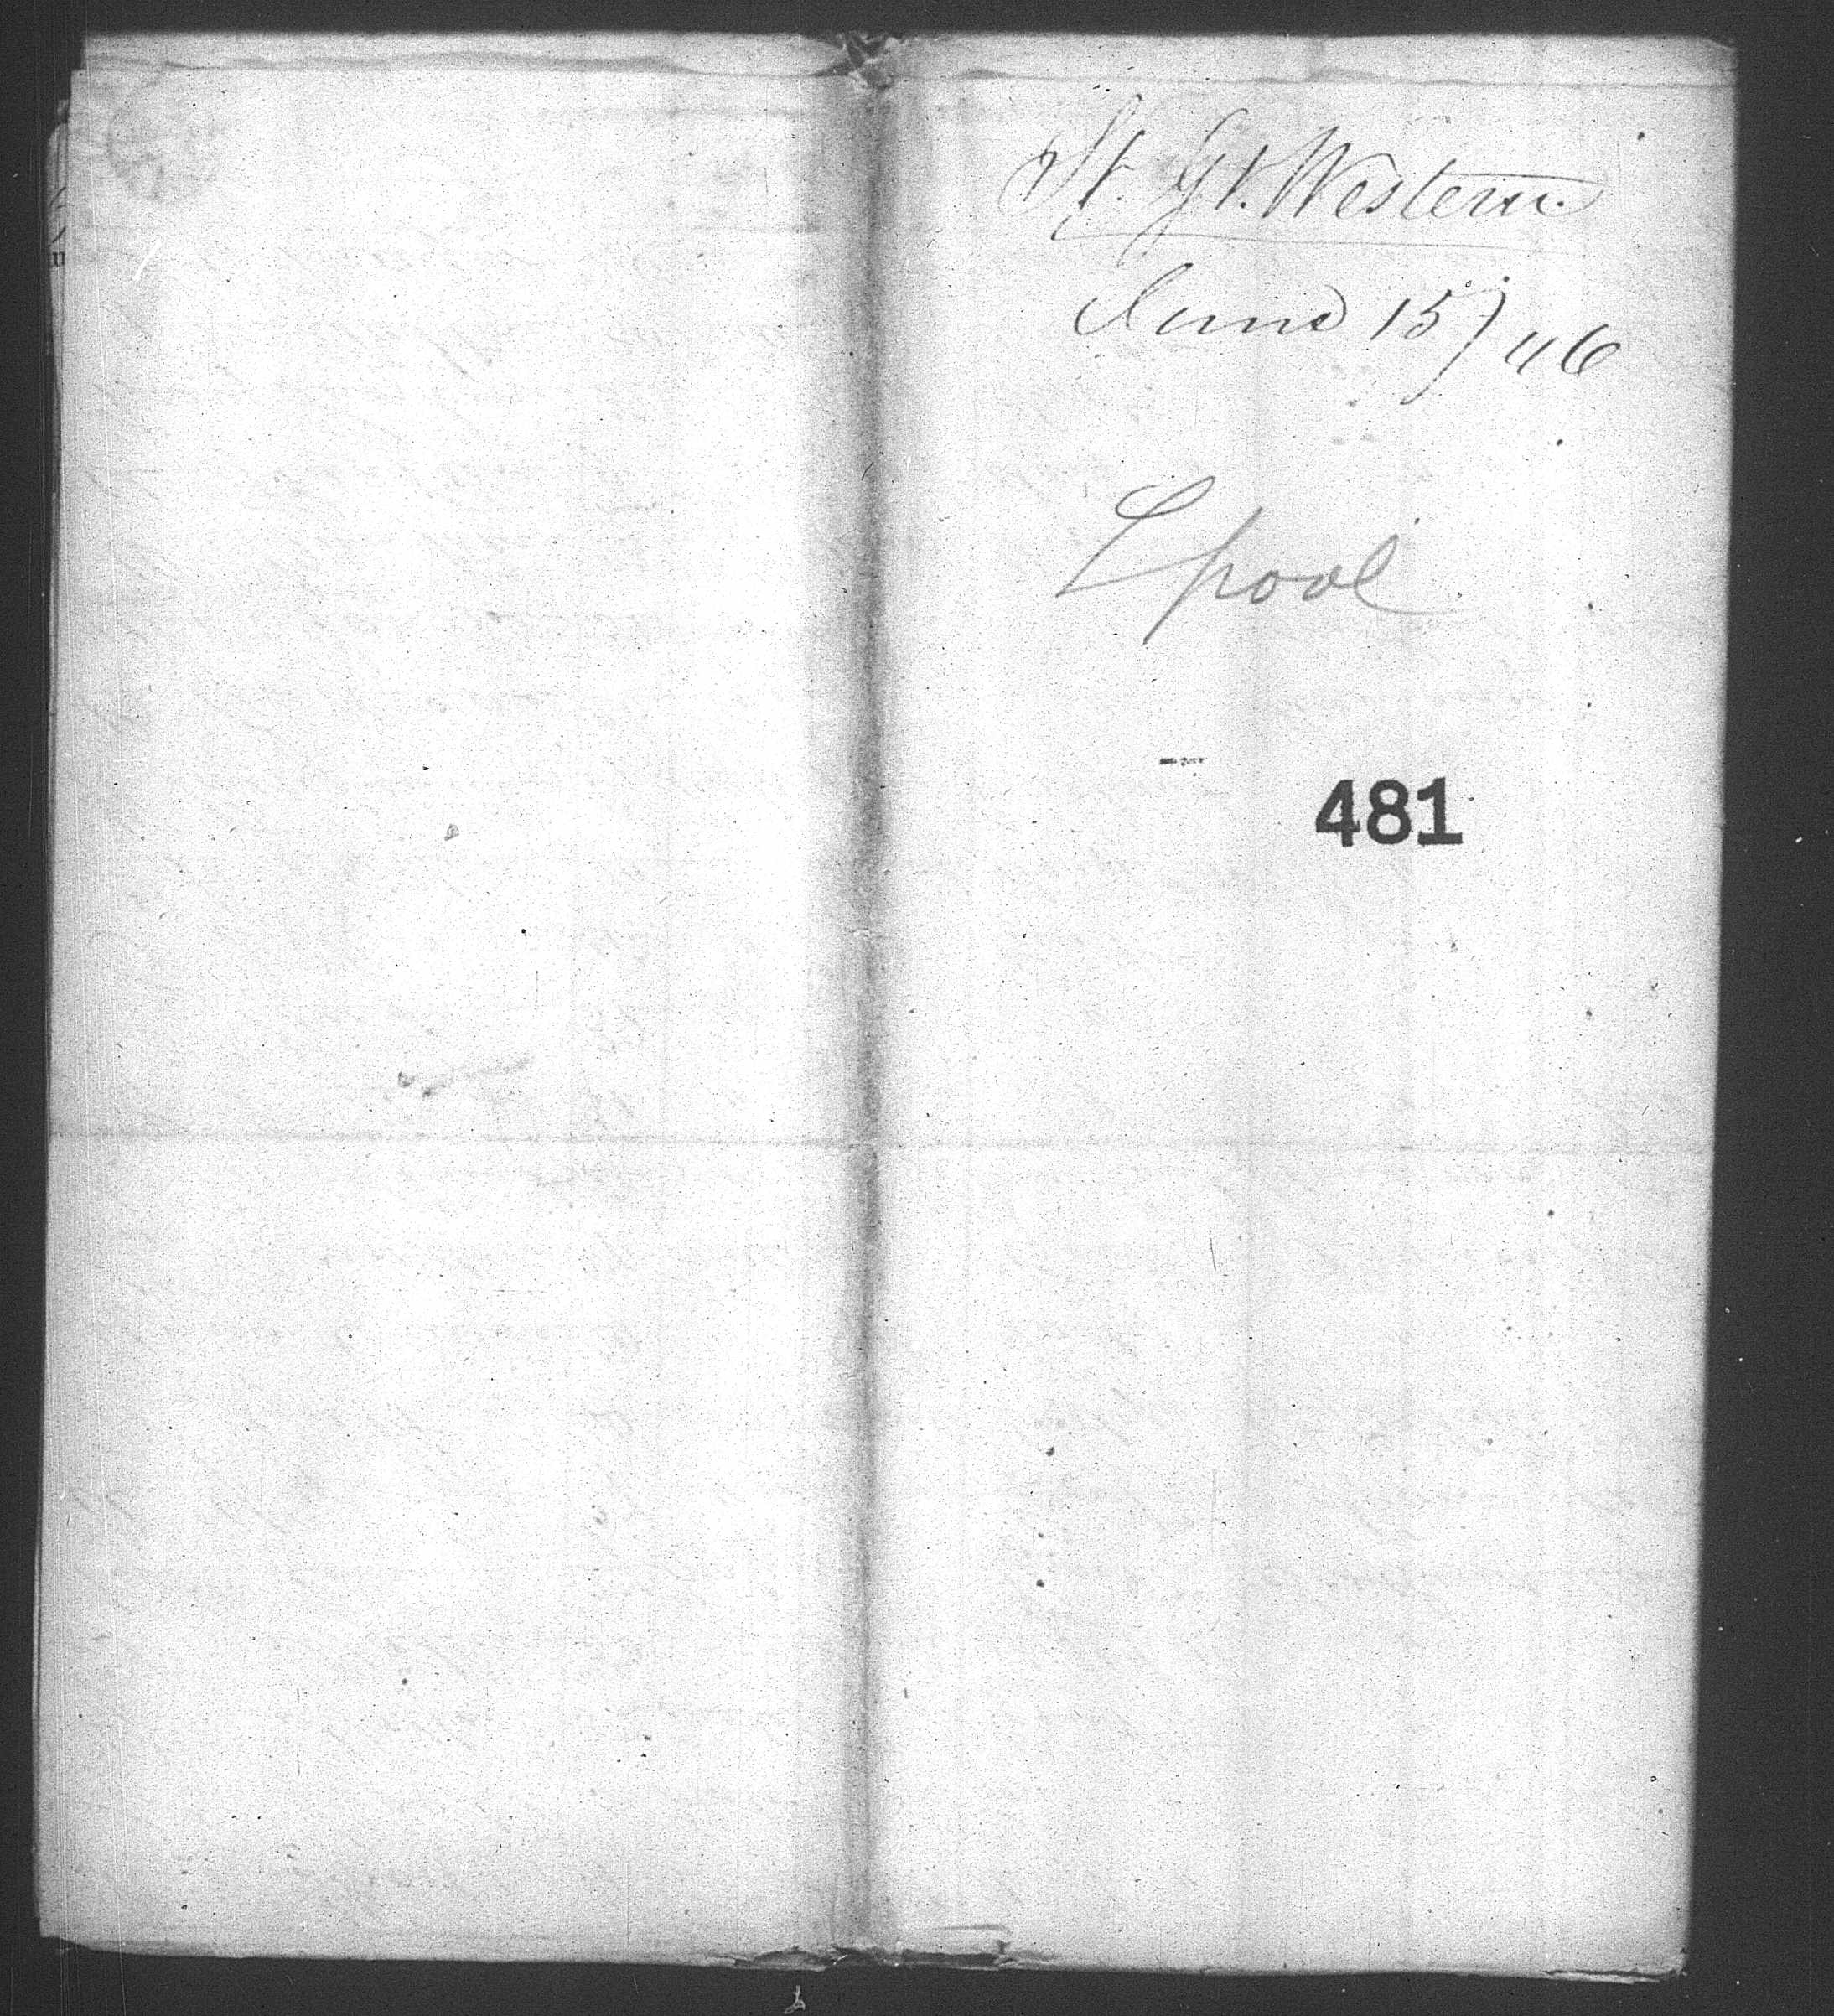 St. Gt. Western.
June 15/46
Lpool
481